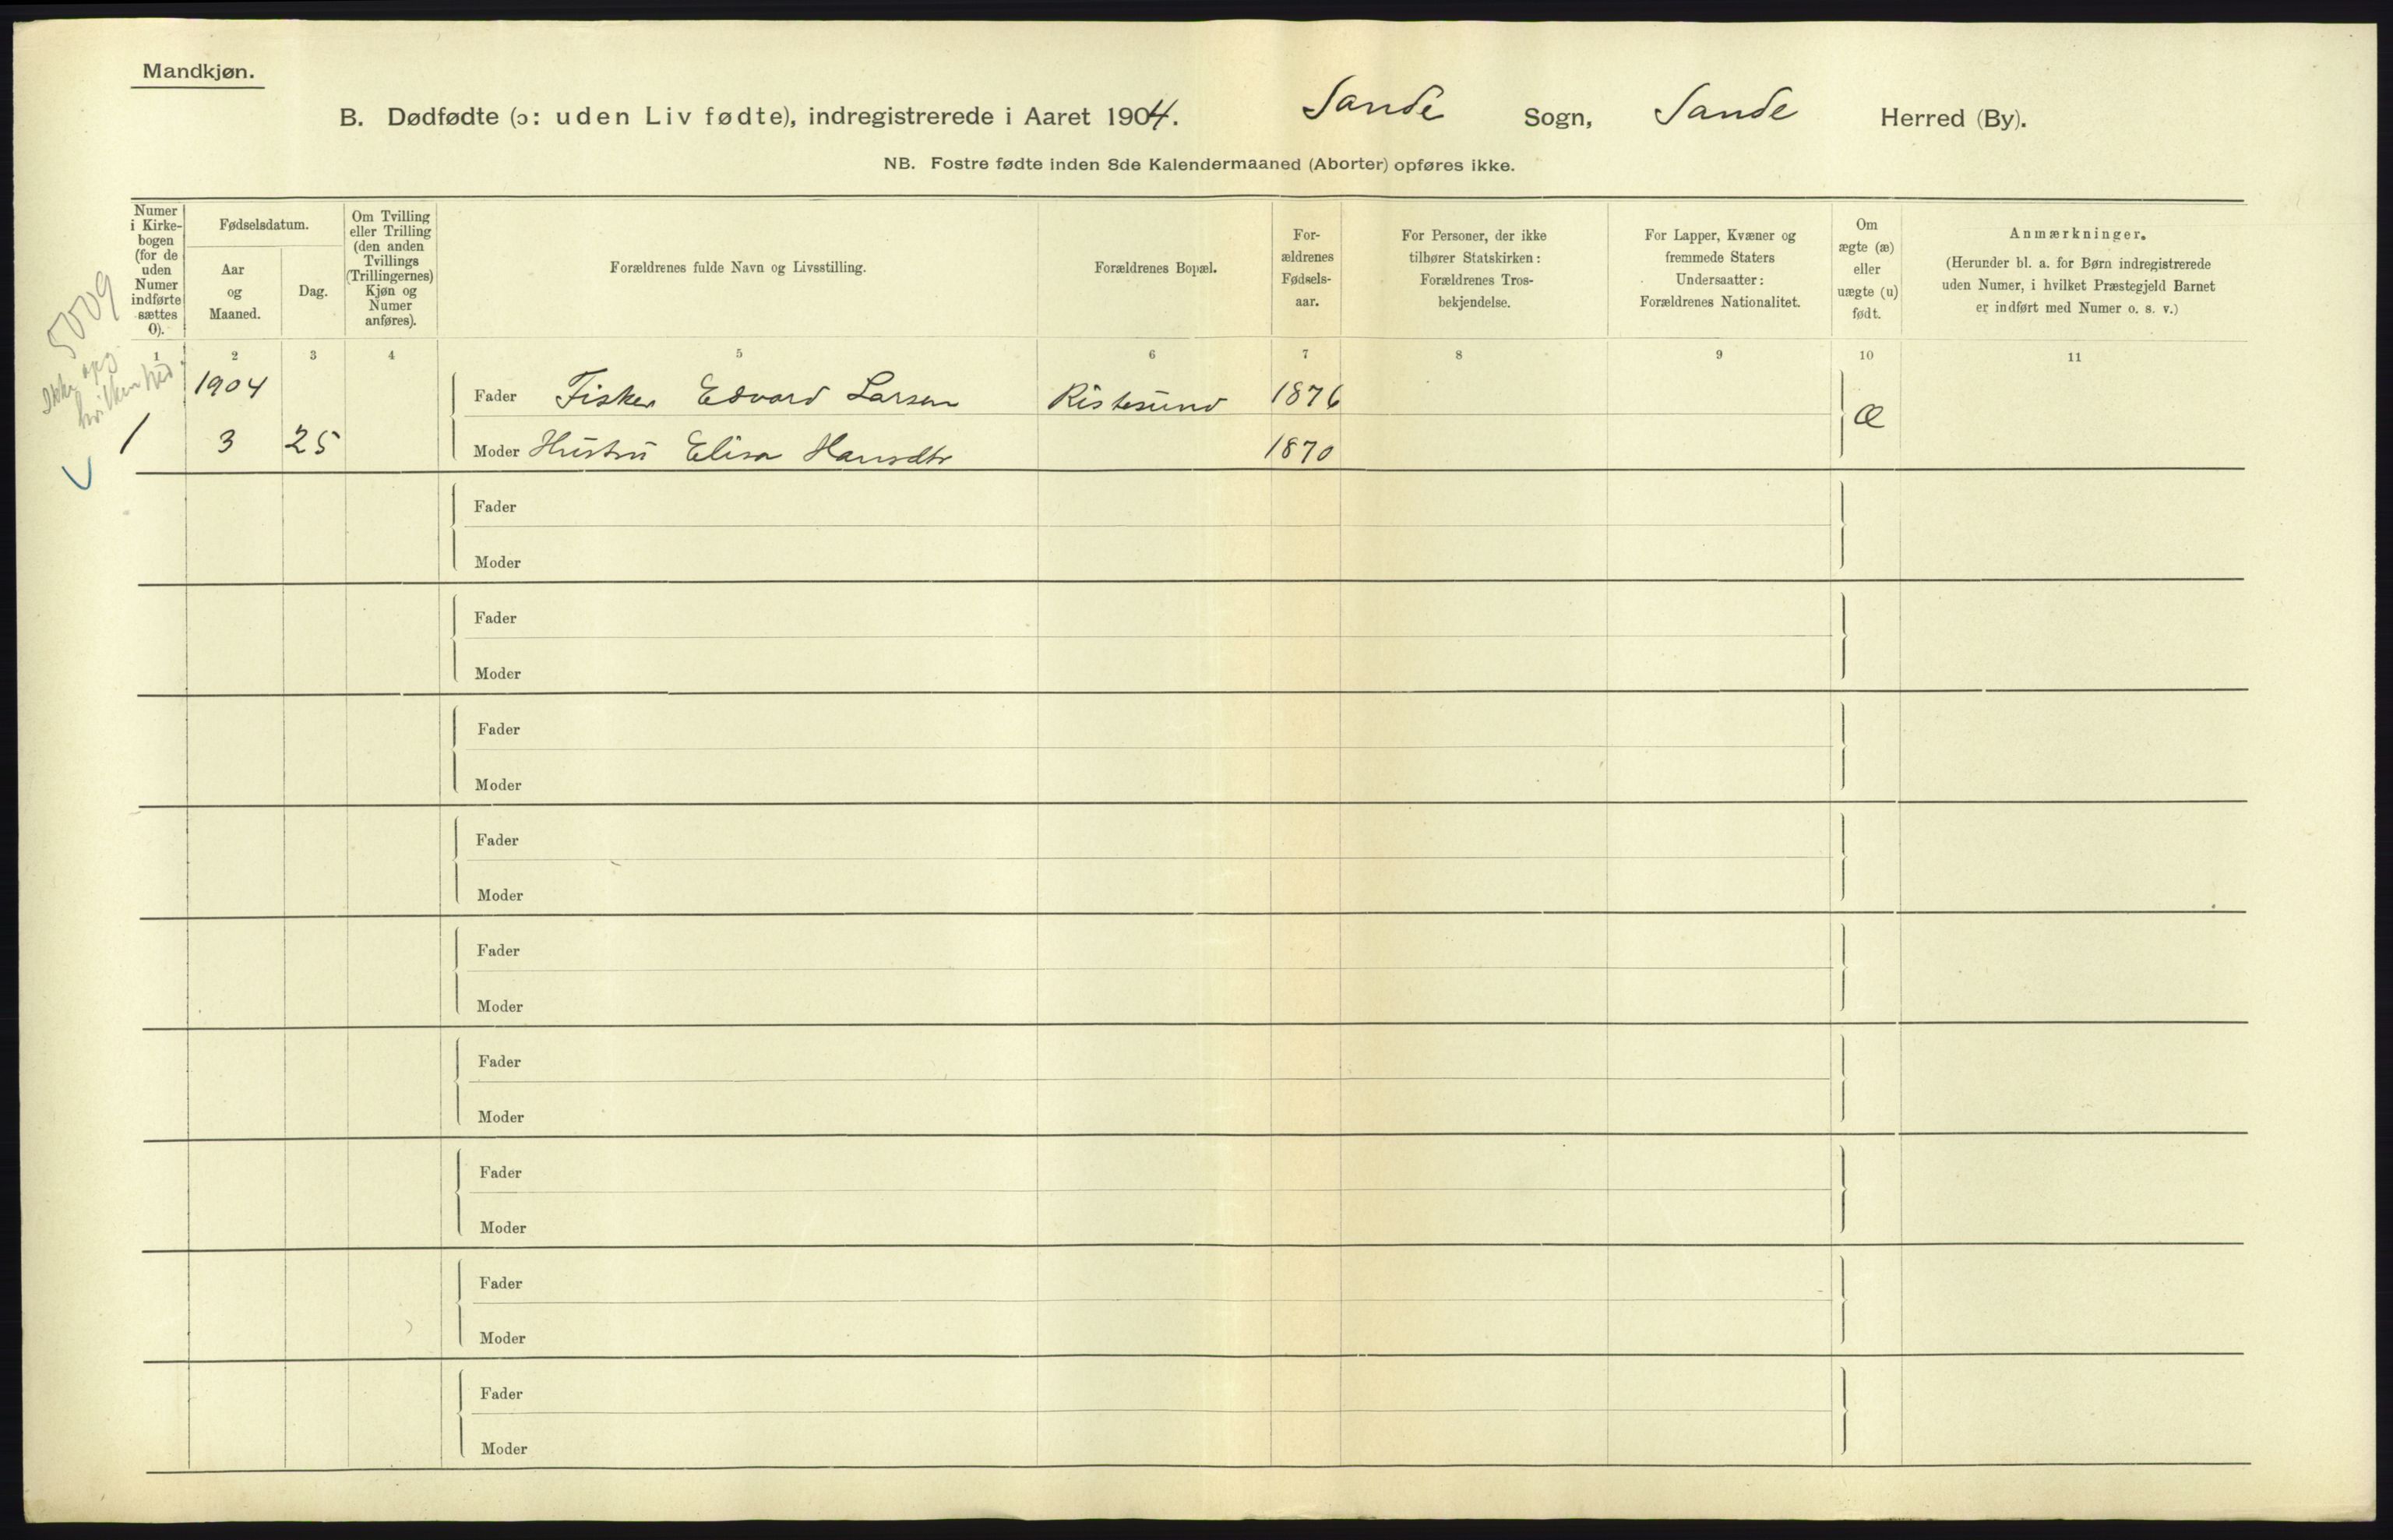 Mandkjøn.
B. Dødfødte (ɔ: uden Liv fødte), indregistrerede i Aaret 1904. Sande Sogn, Sande Herred (By).
NB. Fostre fødte inden 8de Kalendermaaned (Aborter) opføres ikke.
Numer
i Kirke-
bogen
(for de
uden
Numer
indførte
sættes
0).
Fødselsdatum.
Aar
og
Maaned.
Dag.
Om Tvilling
eller Trilling
(den anden
Tvillings
(Trillingernes)
Kjøn og
Numer
anføres).
Forældrenes fulde Navn og Livsstilling.
Forældrenes Bopæl.
For-
ældrenes
Fødsels-
aar.
For Personer, der ikke
tilhører Statskirken:
Forældrenes Tros-
bekjendelse.
For Lapper, Kvæner og
fremmede Staters
Undersaatter:
Forældrenes Nationalitet.
Om
ægte (æ)
eller
uægte (u)
født.
Anmærkninger.
(Herunder bl. a. for Børn indregistrerede
uden Numer, i hvilket Præstegjeld Barnet
er indført med Numer o. s. v.)
5009
Ikke opg
hvilken
1 2 3 4 5 6 7 8 9 10 11
1904 Fader Fisker Edvard Larsen Ristesund 1876 æ
1 3 25 Moder Hustru Elisa Hansdtr 1870
Fader
Moder
Fader
Moder
Fader
Moder
Fader
Moder
Fader
Moder
Fader
Moder
Fader
Moder
Fader
Moder
Fader
Moder